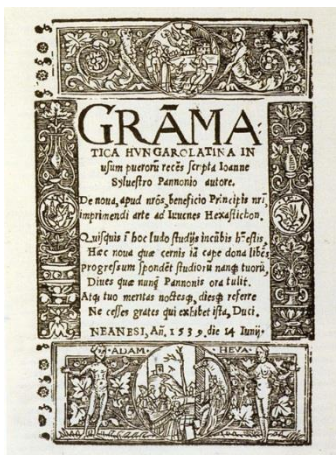 GRĀMA
TICA HVNGAROLATINA IN
usum puerorū recēs scripta Ioanne
Sylvestro Pannonio autore.
De noua, apud nrōs, beneficio Principis nrī,
imprimendi arte ad Iuuenes Hexastichon.
Quisquis ī hoc ludo studijs incūbis hōestis,
Hæc noua quæ cernis iā cape dona libēs
Progressum spondēt studiorū nanq; tuorū,
Diues quæ nunq̄ Pannonis ora tulit.
Atq; tuo meritas noctesq;, diesq; referre
Ne cesses grates qui exhibet ista, Duci.
NEANESI, Añ. 1539. die 14 Iunij.
ADAM HEVA